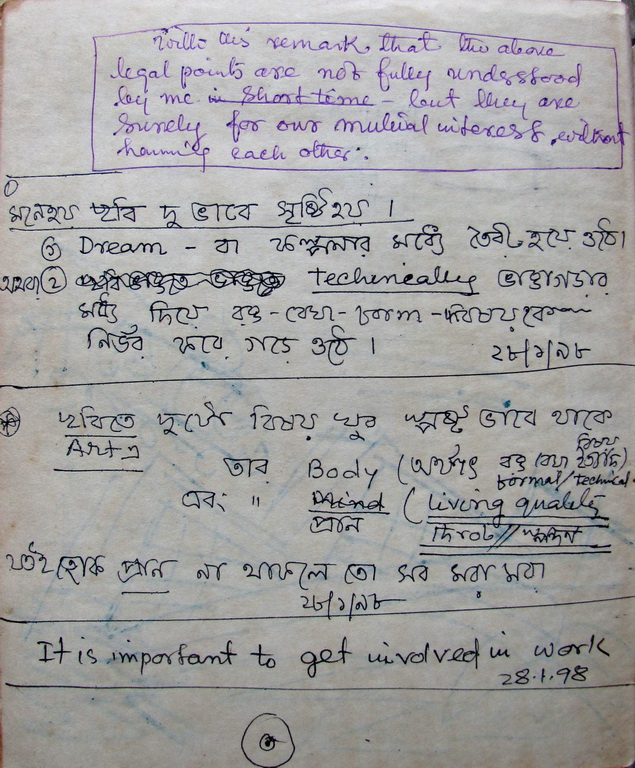 With this remark that the above
legal points are not fully understood
by me in short time - but they are
surely for our mutual interest, without
harming each other.
①
মনেহয় ছবি দু ভাবে সৃষ্টি হয় ।
① Dream - বা কল্পনার মধ্যে তৈরী হয়ে ওঠে।
অথবা ② techenically ভাঙ্গাগড়ার
মধ্যে দিয়ে রঙ - রেখা - form - বিষয়কে
নির্ভর করে গড়ে ওঠে ।
২৮/১/৯৮
ছবিতে দুটো বিষয় খুব স্পষ্ট ভাবে থাকে
Art এ
তার Body (অর্থাৎ রঙ রেখা বিষয় ইত্যাদি)
formal/technical
এবং " Mind (living quality
প্রান throb // স্পন্দন
যতই হোক প্রান না থাকলে তো সব মরা মরা
২৮/১/৯৮
It is important to get involved in work
28.1.98